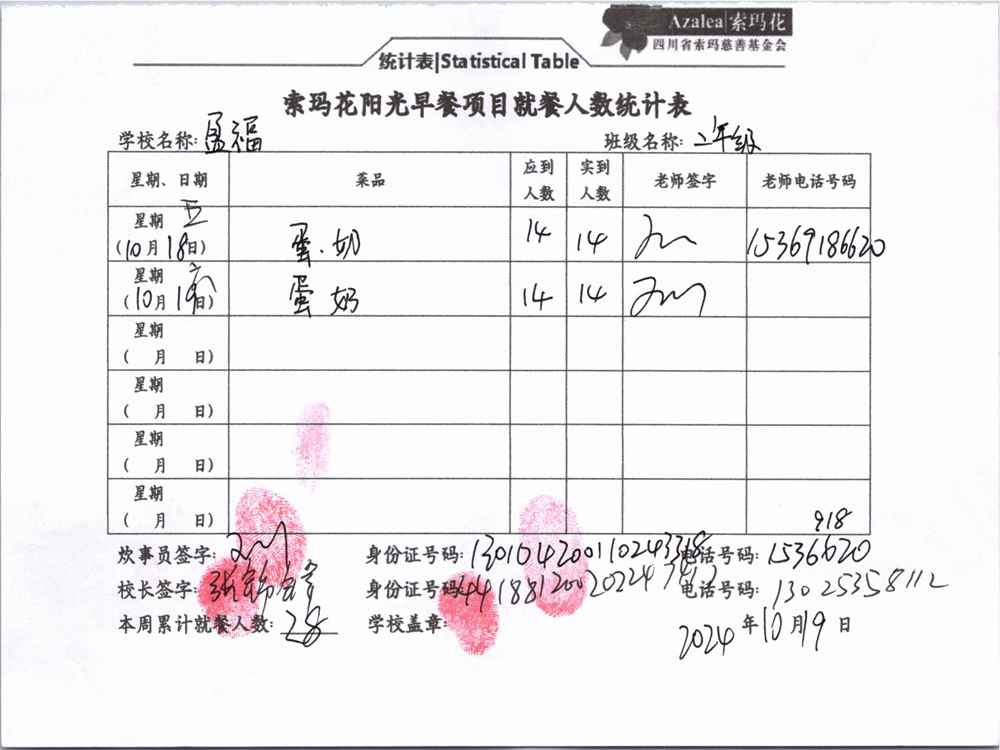 Azalea|索玛花
四川省索玛慈善基金会
统计表|Statistical Table
索玛花阳光早餐项目就餐人数统计表
学校名称:盈福 班级名称:二年级
星期、日期 菜品 应到人数 实到人数 老师签字 老师电话号码
星期 五
(10月18日) 蛋.奶 14 14 15369186620
星期 六
(10月19日) 蛋 奶 14 14
星期
( 月 日)
星期
( 月 日)
星期
( 月 日)
星期
( 月 日)
918
炊事员签字: 身份证号码:130104200110243318 电话号码:1536620
校长签字: 身份证号码: 电话号码:13025358112
本周累计就餐人数:28 学校盖章: 2024年10月19日